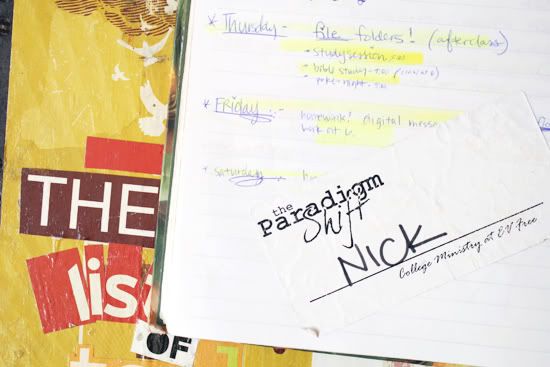 * Thursday - file folders! (afterclass)
• study session
• bible study -
• poker night -
* Friday - homework! digital
* saturday -
the
Paradigm
Shift
NICK
College Ministry at EV Free
THE
list
OF